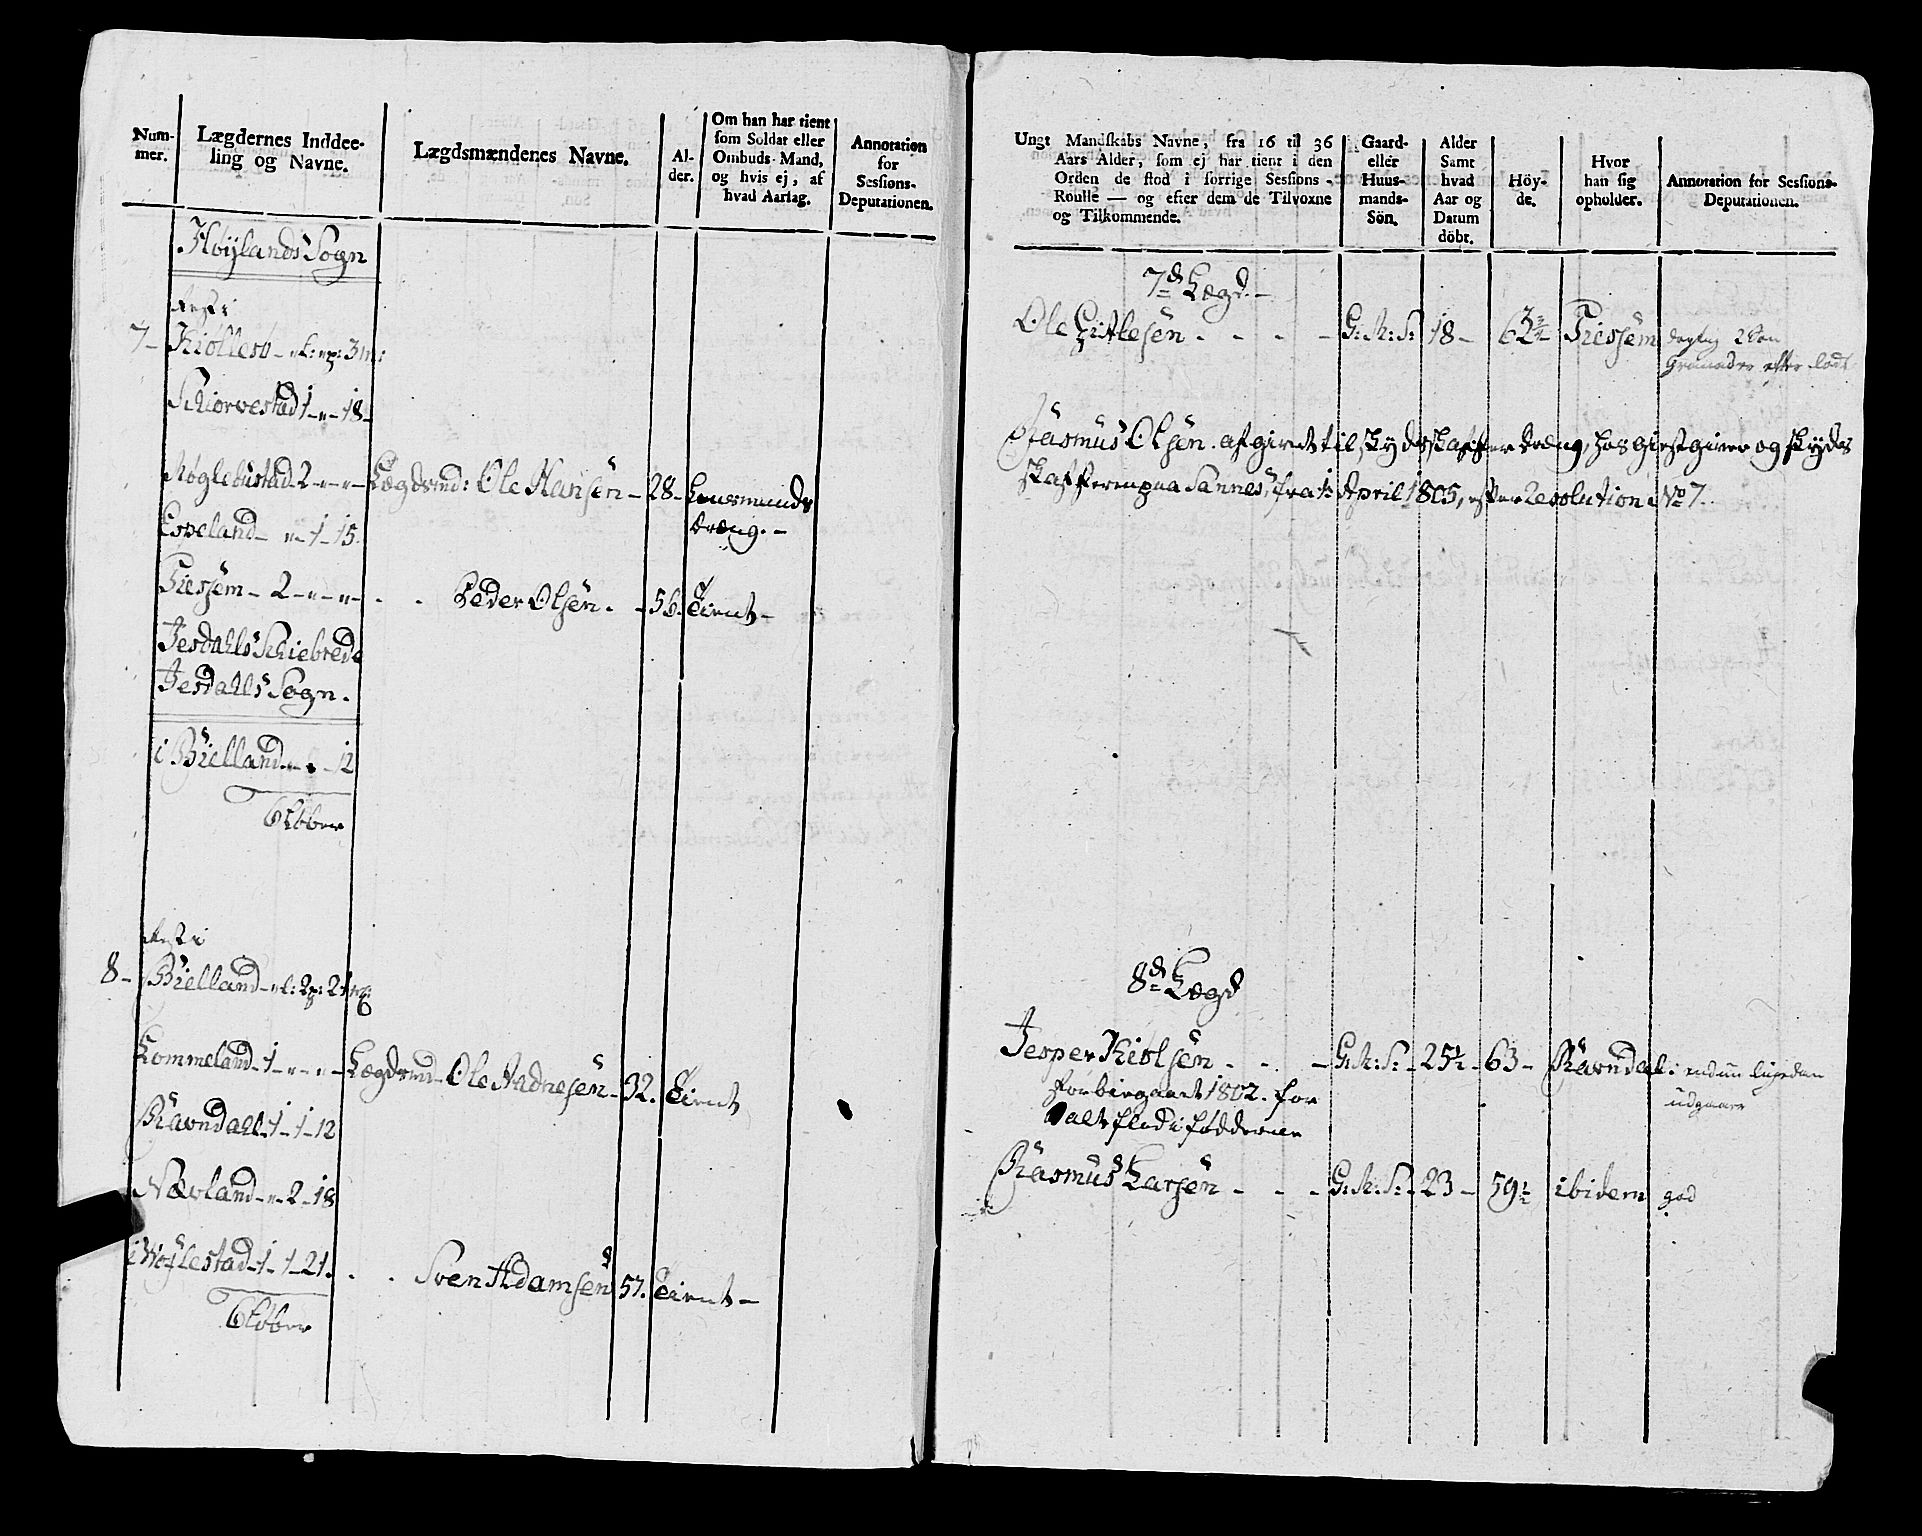 Num-
mer.
Lægdernes Inddee-
ling og Navne.
Lægdsmændenes Navne.
Al-
der.
Om han har tient
som Soldat eller
Ombuds-Mand,
og hvis ej, af
hvad Aarsag.
Annotation
for
Sessions-
Deputationen.
Høylands Sogn
Rest i
7 - Kiøllesv - 3 m:
Skiorvestad 1 - " - 18 -
Røglebustad 2 - " - " - Lægdsmd: Ole Hansen - 28 - Huusmands
dræng. -
Espeland - " - 1 - 15.
Tiessem - 2 - " - " - . . Peder Olsen . - 56. Tient -
Jesdahls Skibrede
Jesdahls Sogn.
i Bielland - " - 12
6 Løber
Rest i
8 - Bielland - " l: 2 p: 21 m:
Kommeland - 1 - " - " - Lægdsmd - Ole Aadnesen - 32. Tient
Ravndahl - 1 - 1 - 12
Nævland - " - 2 - 18
i Røglestad - 1 - 1 - 21. . . Sven Adamsen 57. Tient -
6 Løber
Ungt Mandskabs Navne, fra 16 til 36
Aars Alder, som ej har tient i den
Orden de stod i forrige Sessions-
Roulle — og efter dem de Tilvoxne
og Tilkommende.
Gaard-
eller
Huus-
mands-
Sön.
Alder
Samt
hvad
Aar og
Datum
döbt.
Höy-
de.
Hvor
han sig
opholder.
Annotation for Sessions-
Deputationen.
7de Lægd. -
Ole Gitlesen . - - - G:M:S: 18 - 63 3/4 Tiessem dygtig
Granader efter lod
Rasmus Olsen. afgivet til Skydsskaffer dræng, hos giestgiver og skyds
skafferen paa Sannes, fra 1 April 1805, efter Resolution No 7.
8de Lægd
Jesper Kiolsen - - - G:M:S: - 25 1/2 - 63 - Ravndal:
forbigaaet 1802. for
saltflod i fødderne
udgaaer
Rasmus Larsen - - - G:M:S: - 23 - 59 1/2 ibidem god